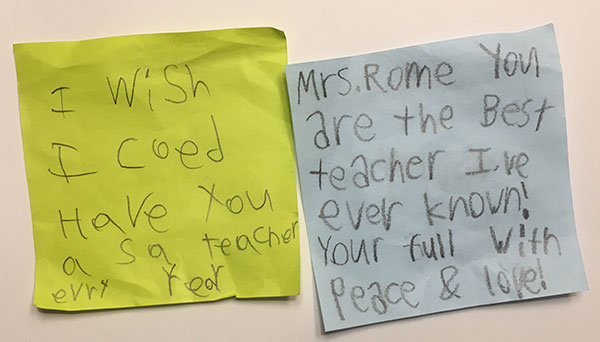 I Wish
I coed
Have You
a s a teacher
evry Year
Mrs. Rome You
are the Best
teacher I.ve
ever known!
Your full With
Peace & love!